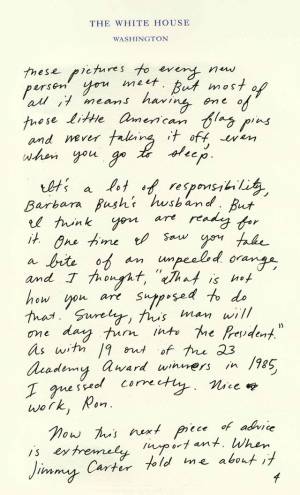 THE WHITE HOUSE
WASHINGTON
these pictures to every new
person you meet. But most of
all it means having one of
those little American flag pins
and never taking it off, even
when you go to sleep.
It's a lot of responsibility,
Barbara Bush's husband. But
I think you are ready for
it. One time I saw you take
a bite of an unpeeled orange,
and I thought, "That is not
how you are supposed to do
that. Surely, this man will
one day turn into the President."
As with 19 out of the 23
Academy Award winners in 1985,
I guessed correctly. Nice
work, Ron.
Now this next piece of advice
is extremely important. When
Jimmy Carter told me about it
4